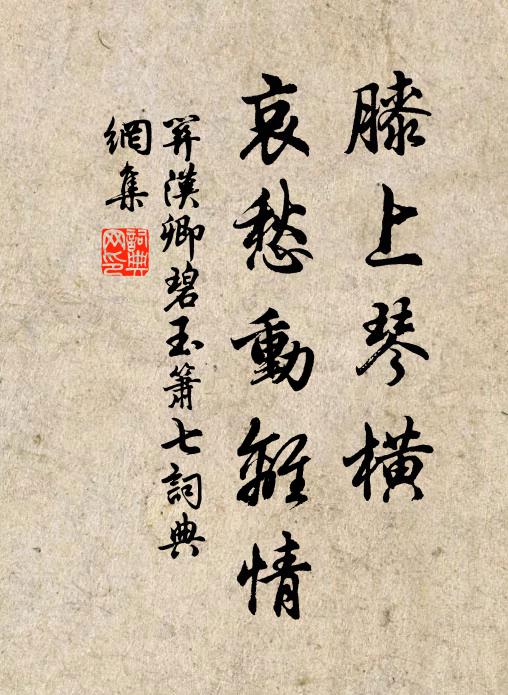 膝上琴橫
哀愁動離情
關漢卿碧玉簫七詞典
網集
詞典
网印